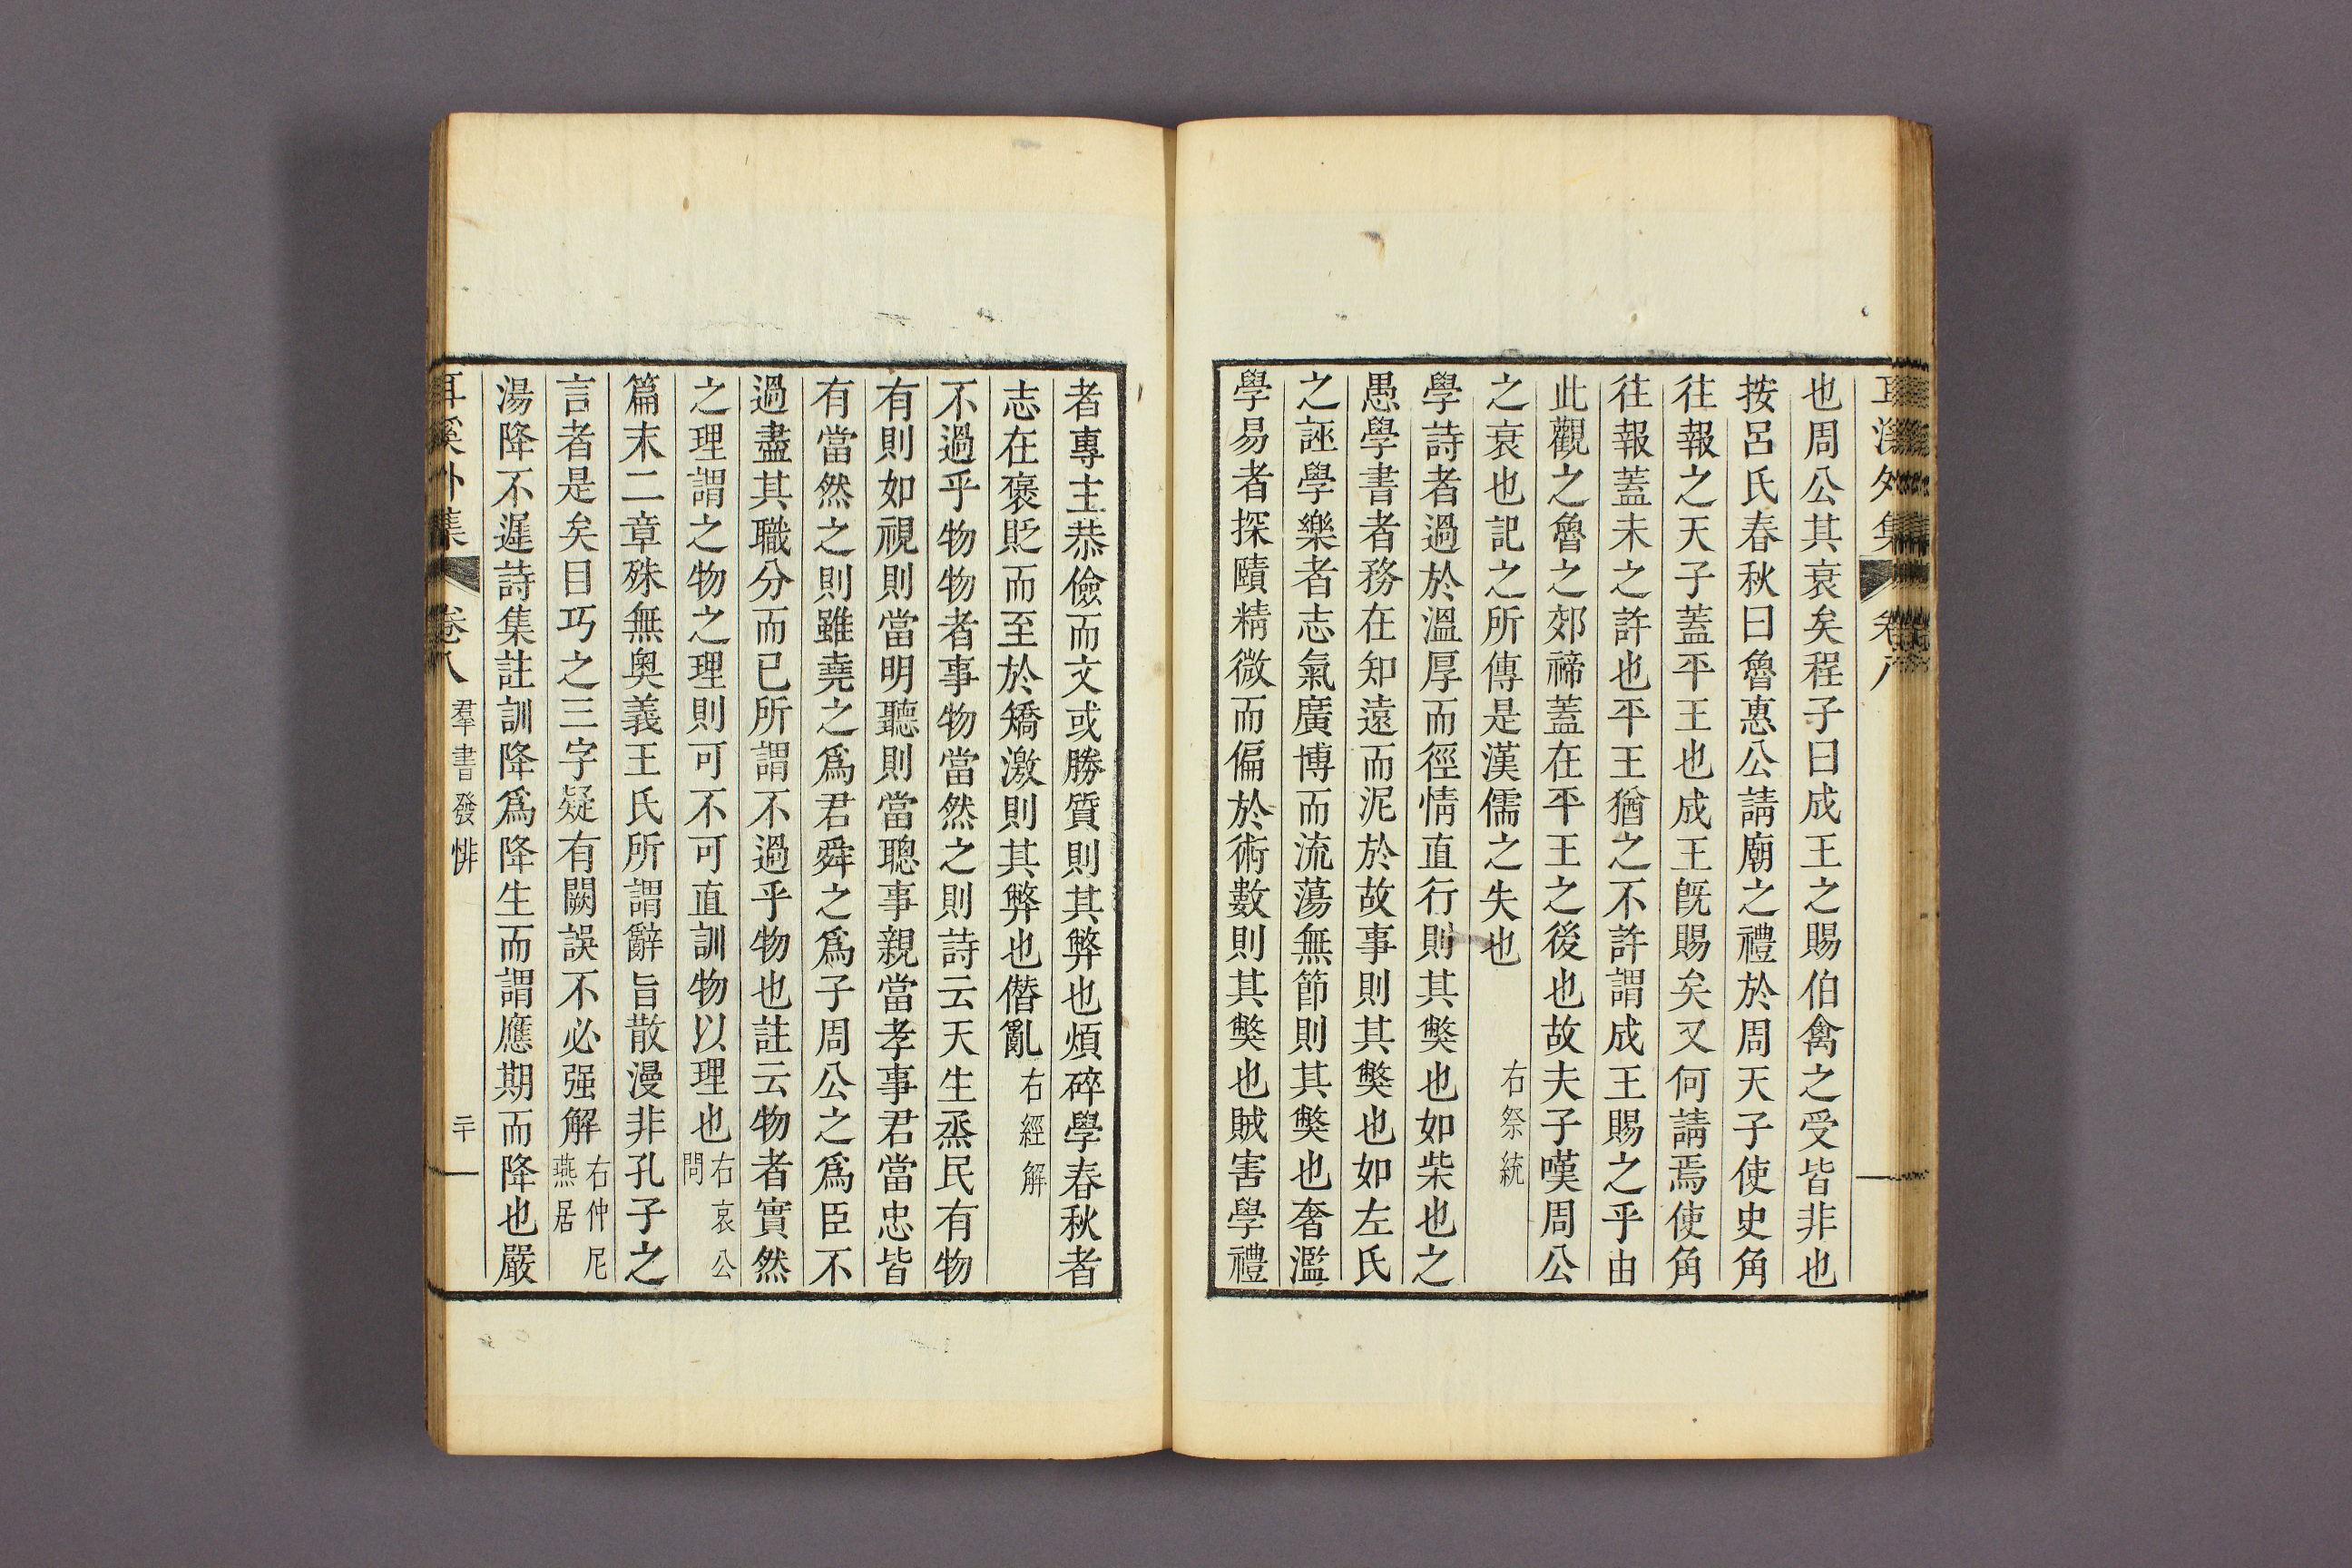 耳溪外集 卷八
也周公其衰矣程子曰成王之賜伯禽之受皆非也
按呂氏春秋曰魯惠公請廟之禮於周天子使史角
往報之天子蓋平王也成王旣賜矣又何請焉使角
往報蓋未之許也平王猶之不許謂成王賜之乎由
此觀之魯之郊禘蓋在平王之後也故夫子嘆周公
之衰也記之所傳是漢儒之失也 右祭統
學詩者過於溫厚而徑情直行則其獘也如柴也之
愚學書者務在知遠而泥於故事則其獘也如左氏
之誣學樂者志氣廣博而流蕩無節則其獘也奢濫
學易者探賾精微而偏於術數則其獘也賊害學禮
者專主恭儉而文或勝質則其弊也煩碎學春秋者
志在褒貶而至於矯激則其弊也僭亂 右經解
不過乎物物者事物當然之則詩云天生烝民有物
有則如視則當明聽則當聰事親當孝事君當忠皆
有當然之則雖堯之爲君舜之爲子周公之爲臣不
過盡其職分而已所謂不過乎物也註云物者實然
之理謂之物之理則可不可直訓物以理也 右哀公問
篇末二章殊無奧義王氏所謂辭旨散漫非孔子之
言者是矣目巧之三字疑有闕誤不必强解 右仲尼燕居
湯降不遲詩集註訓降爲降生而謂應期而降也嚴
耳溪外集 卷八 羣書發悱 二十